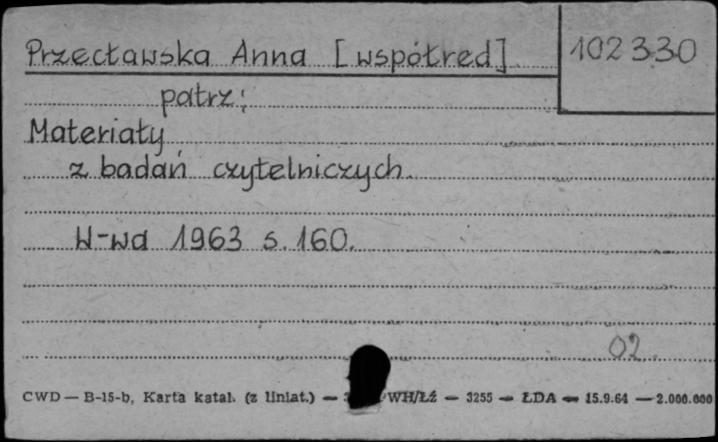 Przecławska Anna [współred] 102330
patrz:
Materiały
z badań czytelniczych.
W-wa 1963 s. 160.
02.
CWD — B-15-b, Karta katal. (z liniat.) — WH/Łź — 3255 — ŁDA — 15.9.64 — 2.000.000